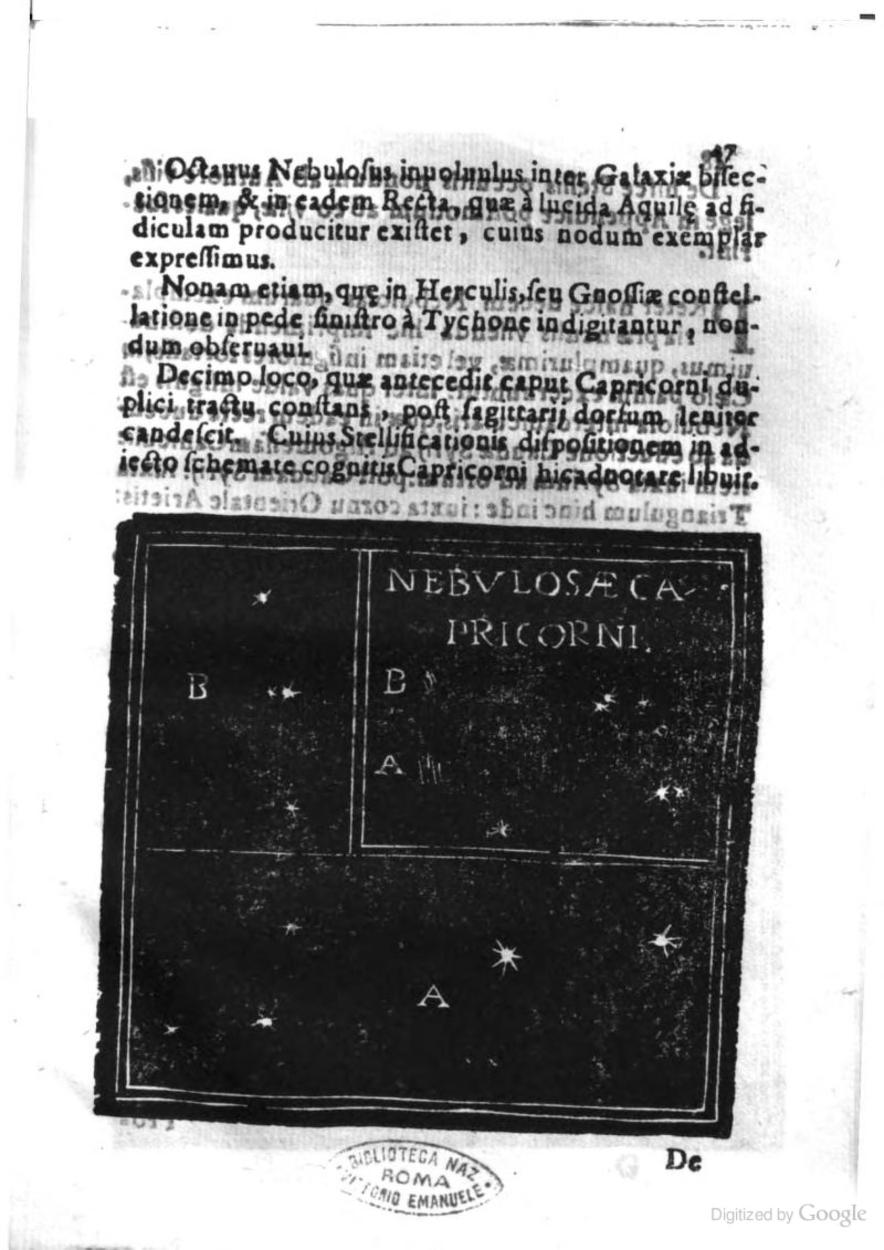 47
Octauus Nebulosus inuolunlus inter Galaxiæ bisec-
tionem, & in eadem Recta, quæ à lucida Aquilę ad fi-
diculam producitur existet, cuius nodum exemplar
expressimus.
Nonam etiam, quę in Herculis, seu Gnossiæ constel-
latione in pede sinistro à Tychone indigitantur, non-
dum obseruaui.
Decimo loco, quæ antecedit caput Capricorni du-
plici tractu constans, post sagittarij dorsum leniter
candescit. Cuius Stellificationis dispositionem in ad-
iecto schemate cognitis Capricorni hic adnotare libuit.
NEBVLOSÆ CA
PRICORNI.
B
B
A
A
De
BIBLIOTECA NAZ
ROMA
VITTORIO EMANUELE
Digitized by Google